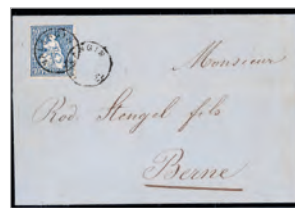 Monsieur
Rod. Stengel fils
Berne